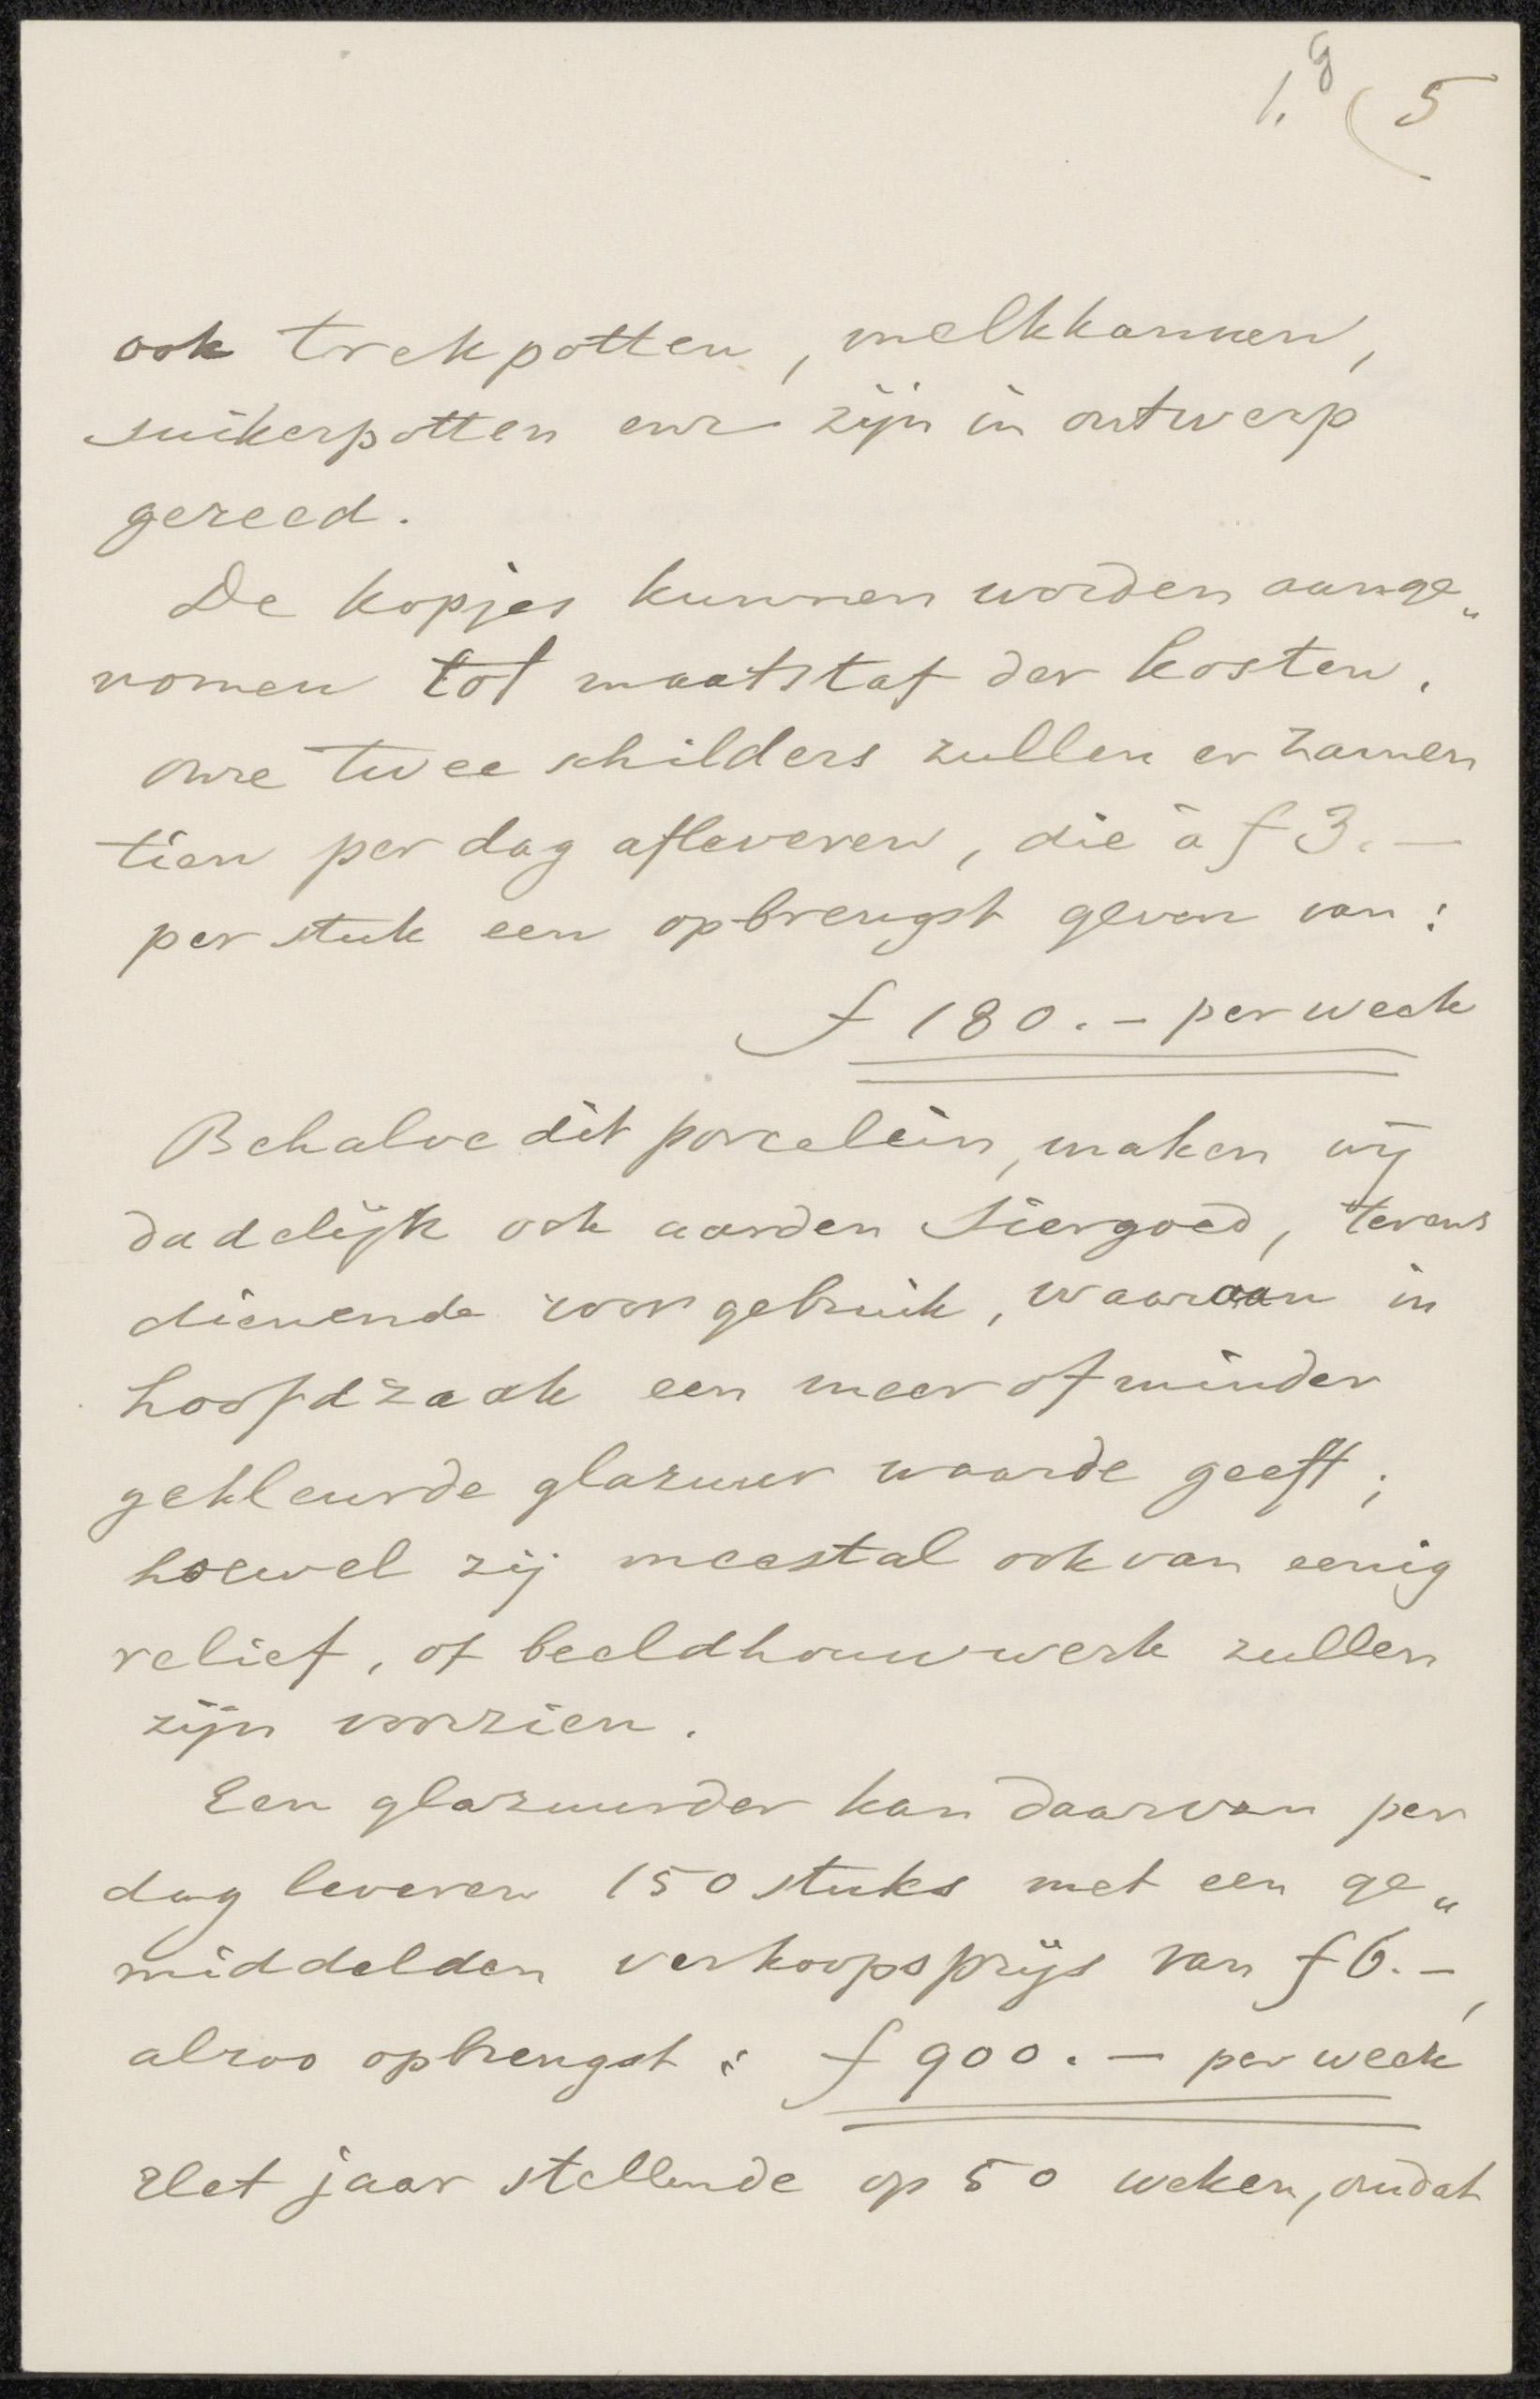 1.g (5
ook trekpotten, melkkannen,
suikerpotten enz zijn in ontwerp
gereed.
De kopjes kunnen worden aange„
nomen tot maatstaf der kosten.
onze twee schilders zullen er zamen
tien per dag afleveren, die à f 3.—
per stuk een opbrengst geven van:
f 180.— per week
Behalve dit porcelein, maken wij
dadelijk ook aarden siergoed, tevens
dienende voor gebruik, waaraan in
hoofdzaak een meer of minder
gekleurde glazuur waarde geeft;
hoewel zij meestal ook van eenig
relief, of beeldhouwwerk zullen
zijn voorzien.
Een glazuurder kan daarvan per
dag leveren 150 stuks met een ge„
middelden verkoopsprijs van f 6.—,
alzoo opbrengst: f 900.— per week
Het jaar stellende op 50 weken, omdat